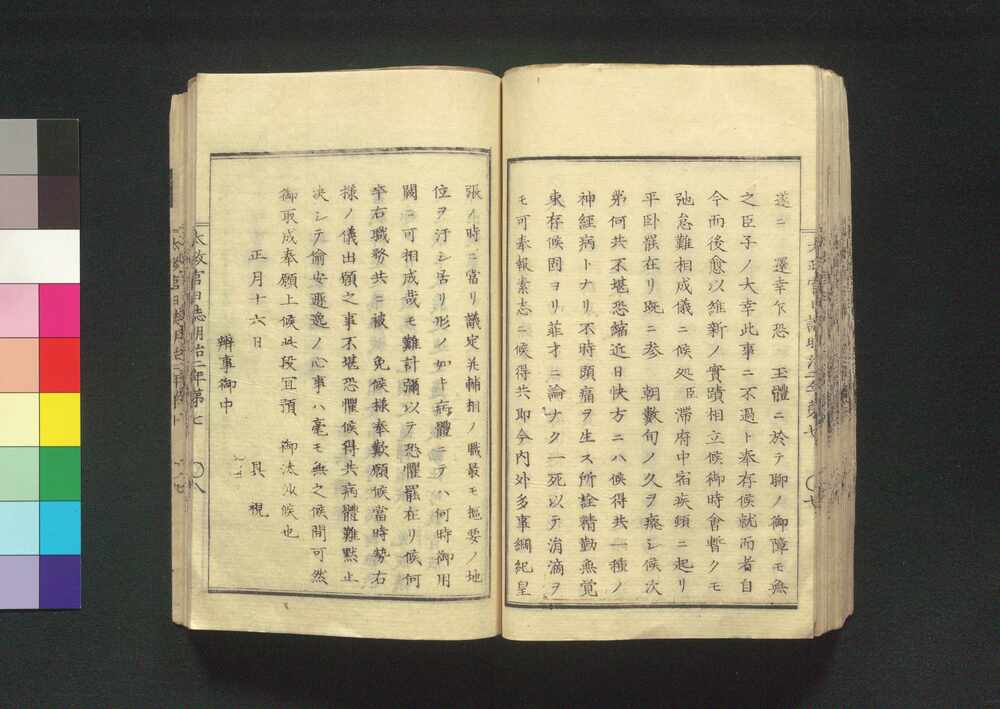 遂ニ　還幸乍恐　玉體ニ於テ聊ノ御障モ無
之臣子ノ大幸此事ニ不過ト奉存候就而者自
今而後愈以維新ノ實蹟相立候御時會暫クモ
弛怠難相成儀ニ候処臣滯府中宿疾頻ニ起リ
平卧罷在リ既ニ参　朝數旬ノ久ヲ癈シ候次
弟何共不堪恐縮近日快方ニハ候得共一種ノ
神經病トナリ不時頭痛ヲ生ス所詮精勤無覚
束存候固ヨリ菲才ニ論ナク一死以テ涓滴ヲ
モ可奉報素志ニ候得共即今内外多事綱紀皇
太政官日誌明治二年第七
張ノ時ニ當リ議定并輔相ノ職最モ樞要ノ地
位ヲ汙シ居リ形ノ如キ病體ニテハ何時御用
闕ニ可相成哉モ難計彌以テ恐懼罷在リ候何
卒右職務共ニ被　免候様奉歎願候當時勢右
様ノ儀出願之事不堪恐懼候得共病體難黙止
决シテ偷安遯逸ノ心事ハ毫モ無之候間可然
御取成奉願上候此段宜預　御沙汰候也
正月十六日　具視
辨事御中
太政官日誌明治二年第七
〇八